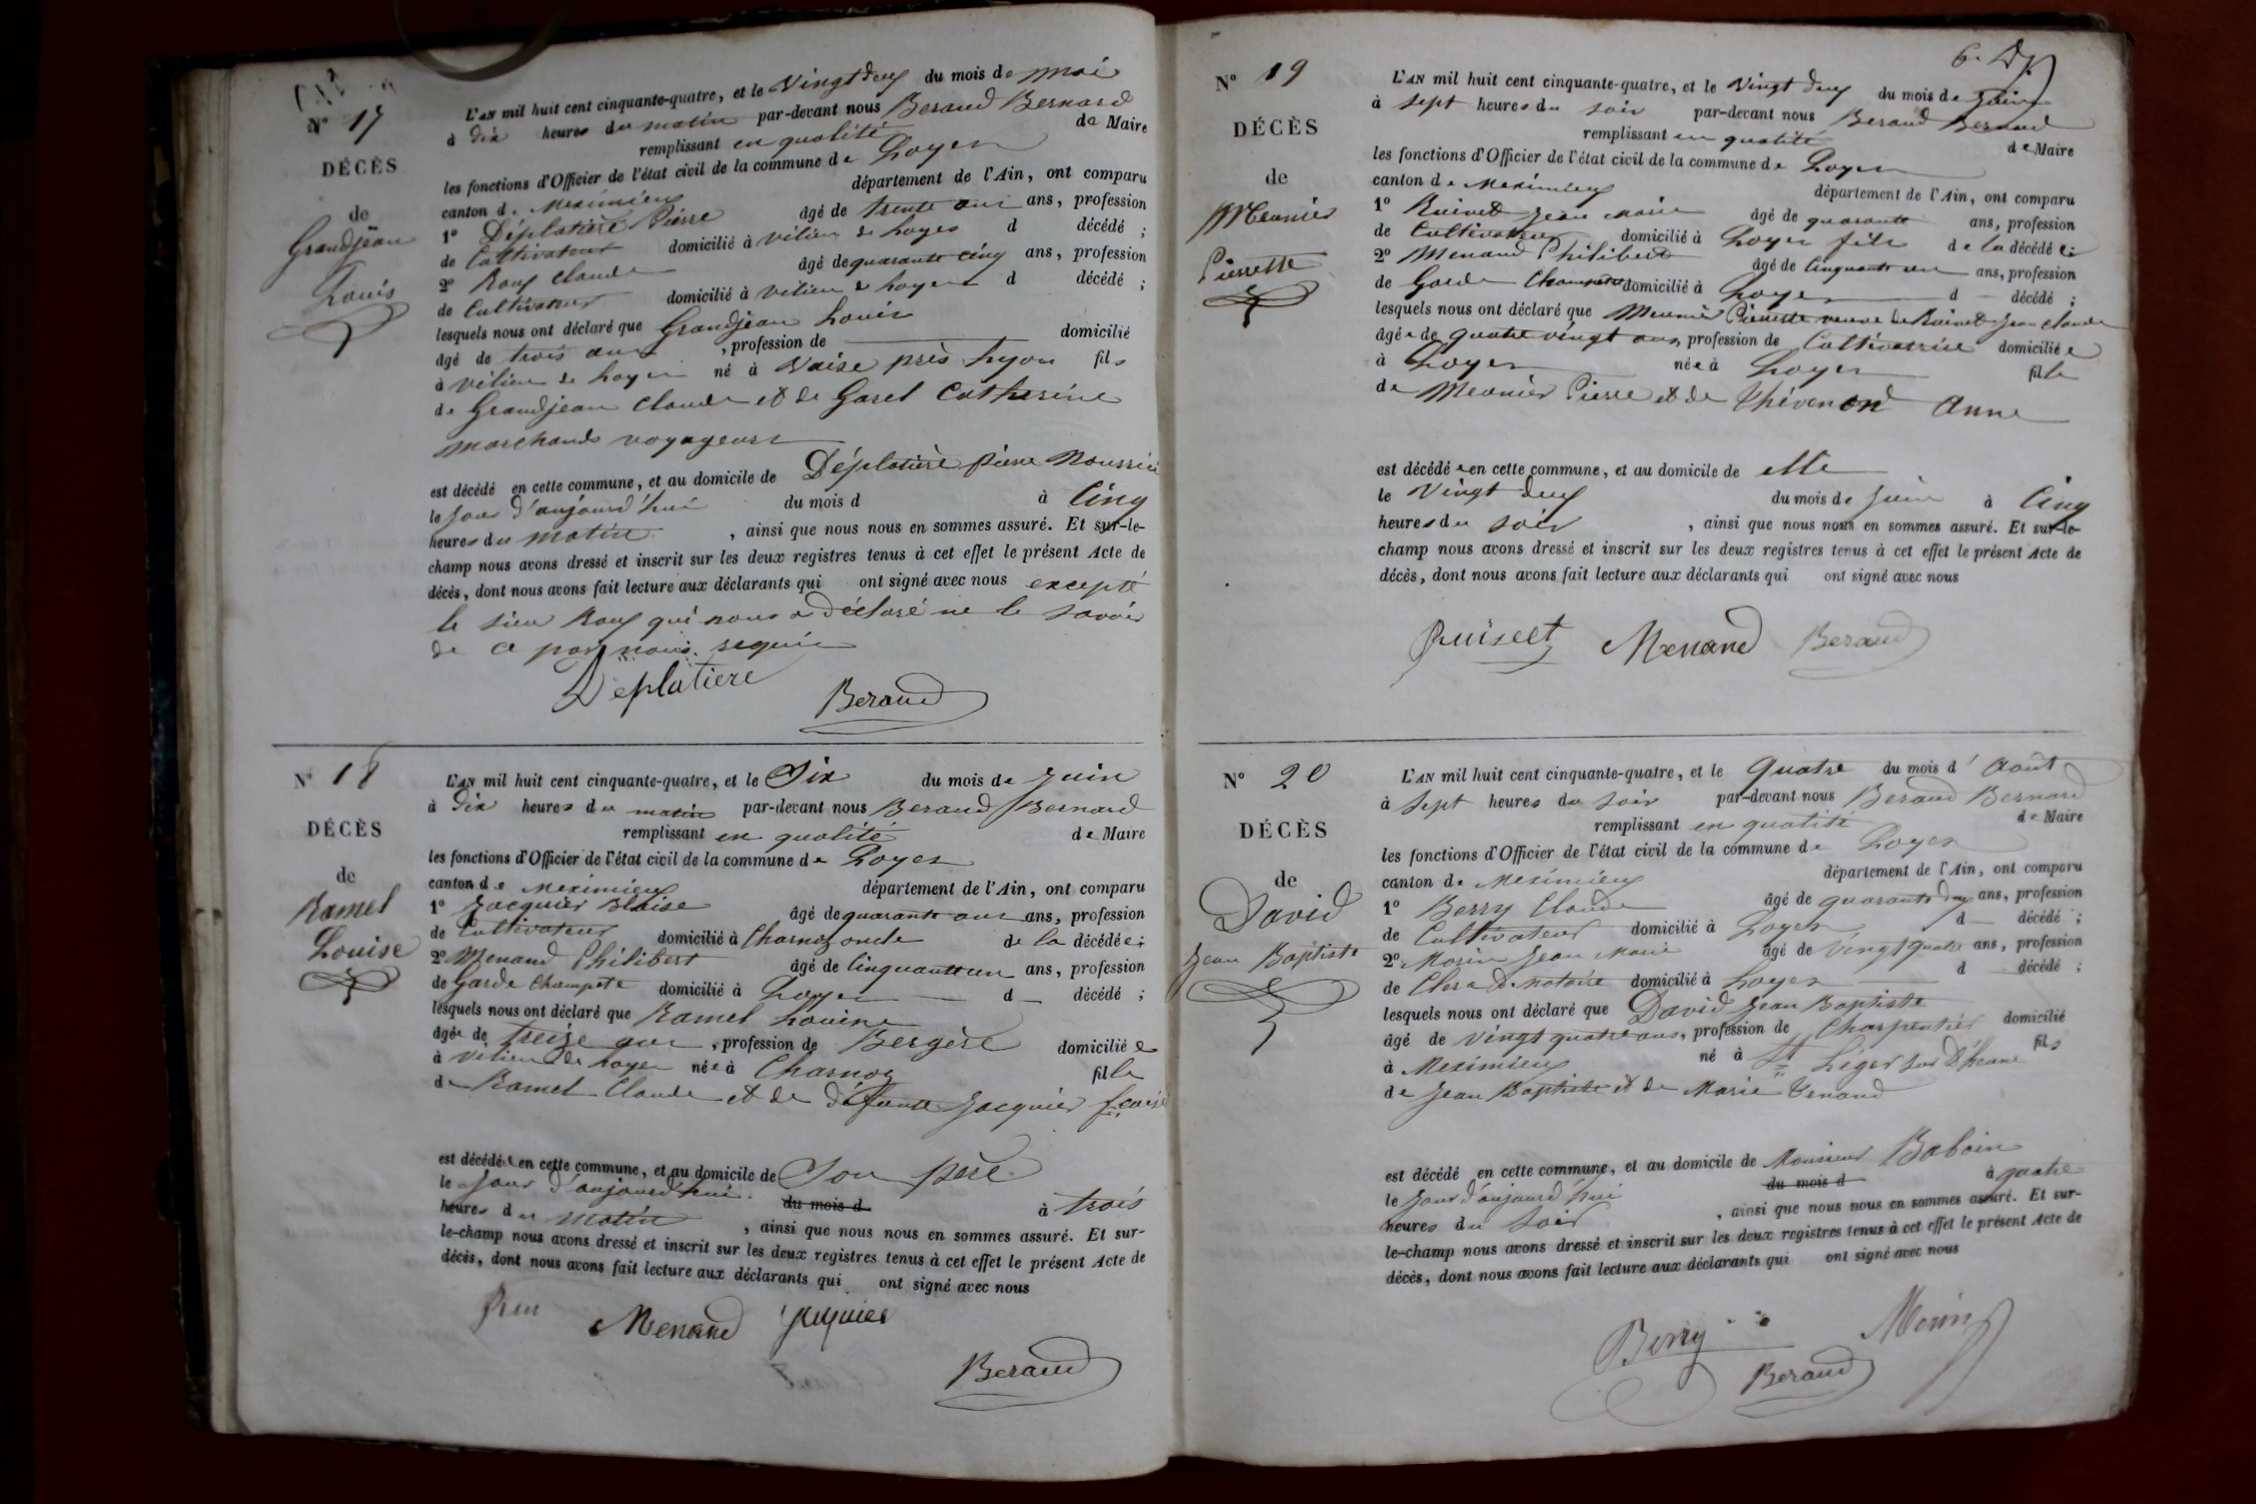 N° 17
DÉCÈS
de
Grandjean
Louis
L'AN mil huit cent cinquante-quatre, et le Vingt deux du mois de mai
à dix heures du matin par-devant nous Beraud Bernard
remplissant en qualité de Maire
les fonctions d'Officier de l'état civil de la commune de Loyes
canton de Meximieux département de l'Ain, ont comparu
1° Déplatière Pierre âgé de trente ans ans, profession
de Cultivateur domicilié à vilieu de Loyes d décédé ;
2° Roux Claude âgé de quarante cinq ans, profession
de Cultivateur domicilié à vilieu de Loyes d décédé ;
lesquels nous ont déclaré que Grandjean Louis
âgé de trois ans, profession de domicilié
à vilieu de Loyes né à Vaise près Lyon fils
de Grandjean Claude et de Garel Catherine
marchands voyageurs
est décédé en cette commune, et au domicile de Déplatière Pierre
le Jour d'aujourd'hui du mois d à Cinq
heures du matin, ainsi que nous nous en sommes assuré. Et sur-le-
champ nous avons dressé et inscrit sur les deux registres tenus à cet effet le présent Acte de
décès, dont nous avons fait lecture aux déclarants qui ont signé avec nous excepté
le sieur Roux qui nous a déclaré ne le savoir
de ce par nous requis
Déplatiere
Beraud
N° 18
DÉCÈS
de
Ramel
Louise
L'AN mil huit cent cinquante-quatre, et le Six du mois de Juin
à dix heures du matin par-devant nous Beraud Bernard
remplissant en qualité de Maire
les fonctions d'Officier de l'état civil de la commune de Loyes
canton de Meximieux département de l'Ain, ont comparu
1° Jacquier Blaise âgé de quarante ans ans, profession
de Cultivateur domicilié à Charnoz oncle de la décédée ;
2° Menand Philibert âgé de Cinquante un ans, profession
de Garde Champete domicilié à Loyes d décédé ;
lesquels nous ont déclaré que Ramel Louise
âgée de treize ans, profession de Bergère domiciliée
à vilieu de Loyes née à Charnoz fille
de Ramel Claude et de défunte Jacquier
est décédée en cette commune, et au domicile de Son père
le Jour d'aujourd'hui du mois d à trois
heures du matin, ainsi que nous nous en sommes assuré. Et sur-
le-champ nous avons dressé et inscrit sur les deux registres tenus à cet effet le présent Acte de
décès, dont nous avons fait lecture aux déclarants qui ont signé avec nous
Menand Jaquier
Beraud
N° 19
DÉCÈS
de
Meunier
Pierrette
L'AN mil huit cent cinquante-quatre, et le Vingt deux du mois de Juin
à Sept heures du soir par-devant nous Beraud Bernard
remplissant en qualité de Maire
les fonctions d'Officier de l'état civil de la commune de Loyes
canton de Meximieux département de l'Ain, ont comparu
1° Ruinet Jean Marie âgé de quarante ans, profession
de Cultivateur domicilié à Loyes fils de la décédée ;
2° Menand Philibert âgé de Cinquante un ans, profession
de Garde Champete domicilié à Loyes d décédé ;
lesquels nous ont déclaré que Meunier Pierrette veuve de Ruinet Jean Claude
âgée de quatre vingt ans, profession de Cultivatrice domiciliée
à Loyes née à Loyes fille
de Meunier Pierre et de Thévenon Anne
est décédée en cette commune, et au domicile de elle
le Vingt deux du mois de Juin à Cinq
heures du soir, ainsi que nous nous en sommes assuré. Et sur-le-
champ nous avons dressé et inscrit sur les deux registres tenus à cet effet le présent Acte de
décès, dont nous avons fait lecture aux déclarants qui ont signé avec nous
Menand Beraud
N° 20
DÉCÈS
de
David
Jean Baptiste
L'AN mil huit cent cinquante-quatre, et le Quatre du mois d'Août
à Sept heures du Soir par-devant nous Beraud Bernard
remplissant en qualité de Maire
les fonctions d'Officier de l'état civil de la commune de Loyes
canton de Meximieux département de l'Ain, ont comparu
1° Berry Claude âgé de quarante deux ans, profession
de Cultivateur domicilié à Loyes d décédé ;
2° Morin Jean Marie âgé de vingt quatre ans, profession
de Clerc de notaire domicilié à Loyes d décédé ;
lesquels nous ont déclaré que David Jean Baptiste
âgé de vingt quatre ans, profession de Charpentier domicilié
à Meximieux né à St Léger sur d'heune fils
de Jean Baptiste et de Marie
est décédé en cette commune, et au domicile de Monsieur Baboin
le Jour d'aujourd'hui du mois d à quatre
heures du Soir, ainsi que nous nous en sommes assuré. Et sur-
le-champ nous avons dressé et inscrit sur les deux registres tenus à cet effet le présent Acte de
décès, dont nous avons fait lecture aux déclarants qui ont signé avec nous
Berry Morin
Beraud